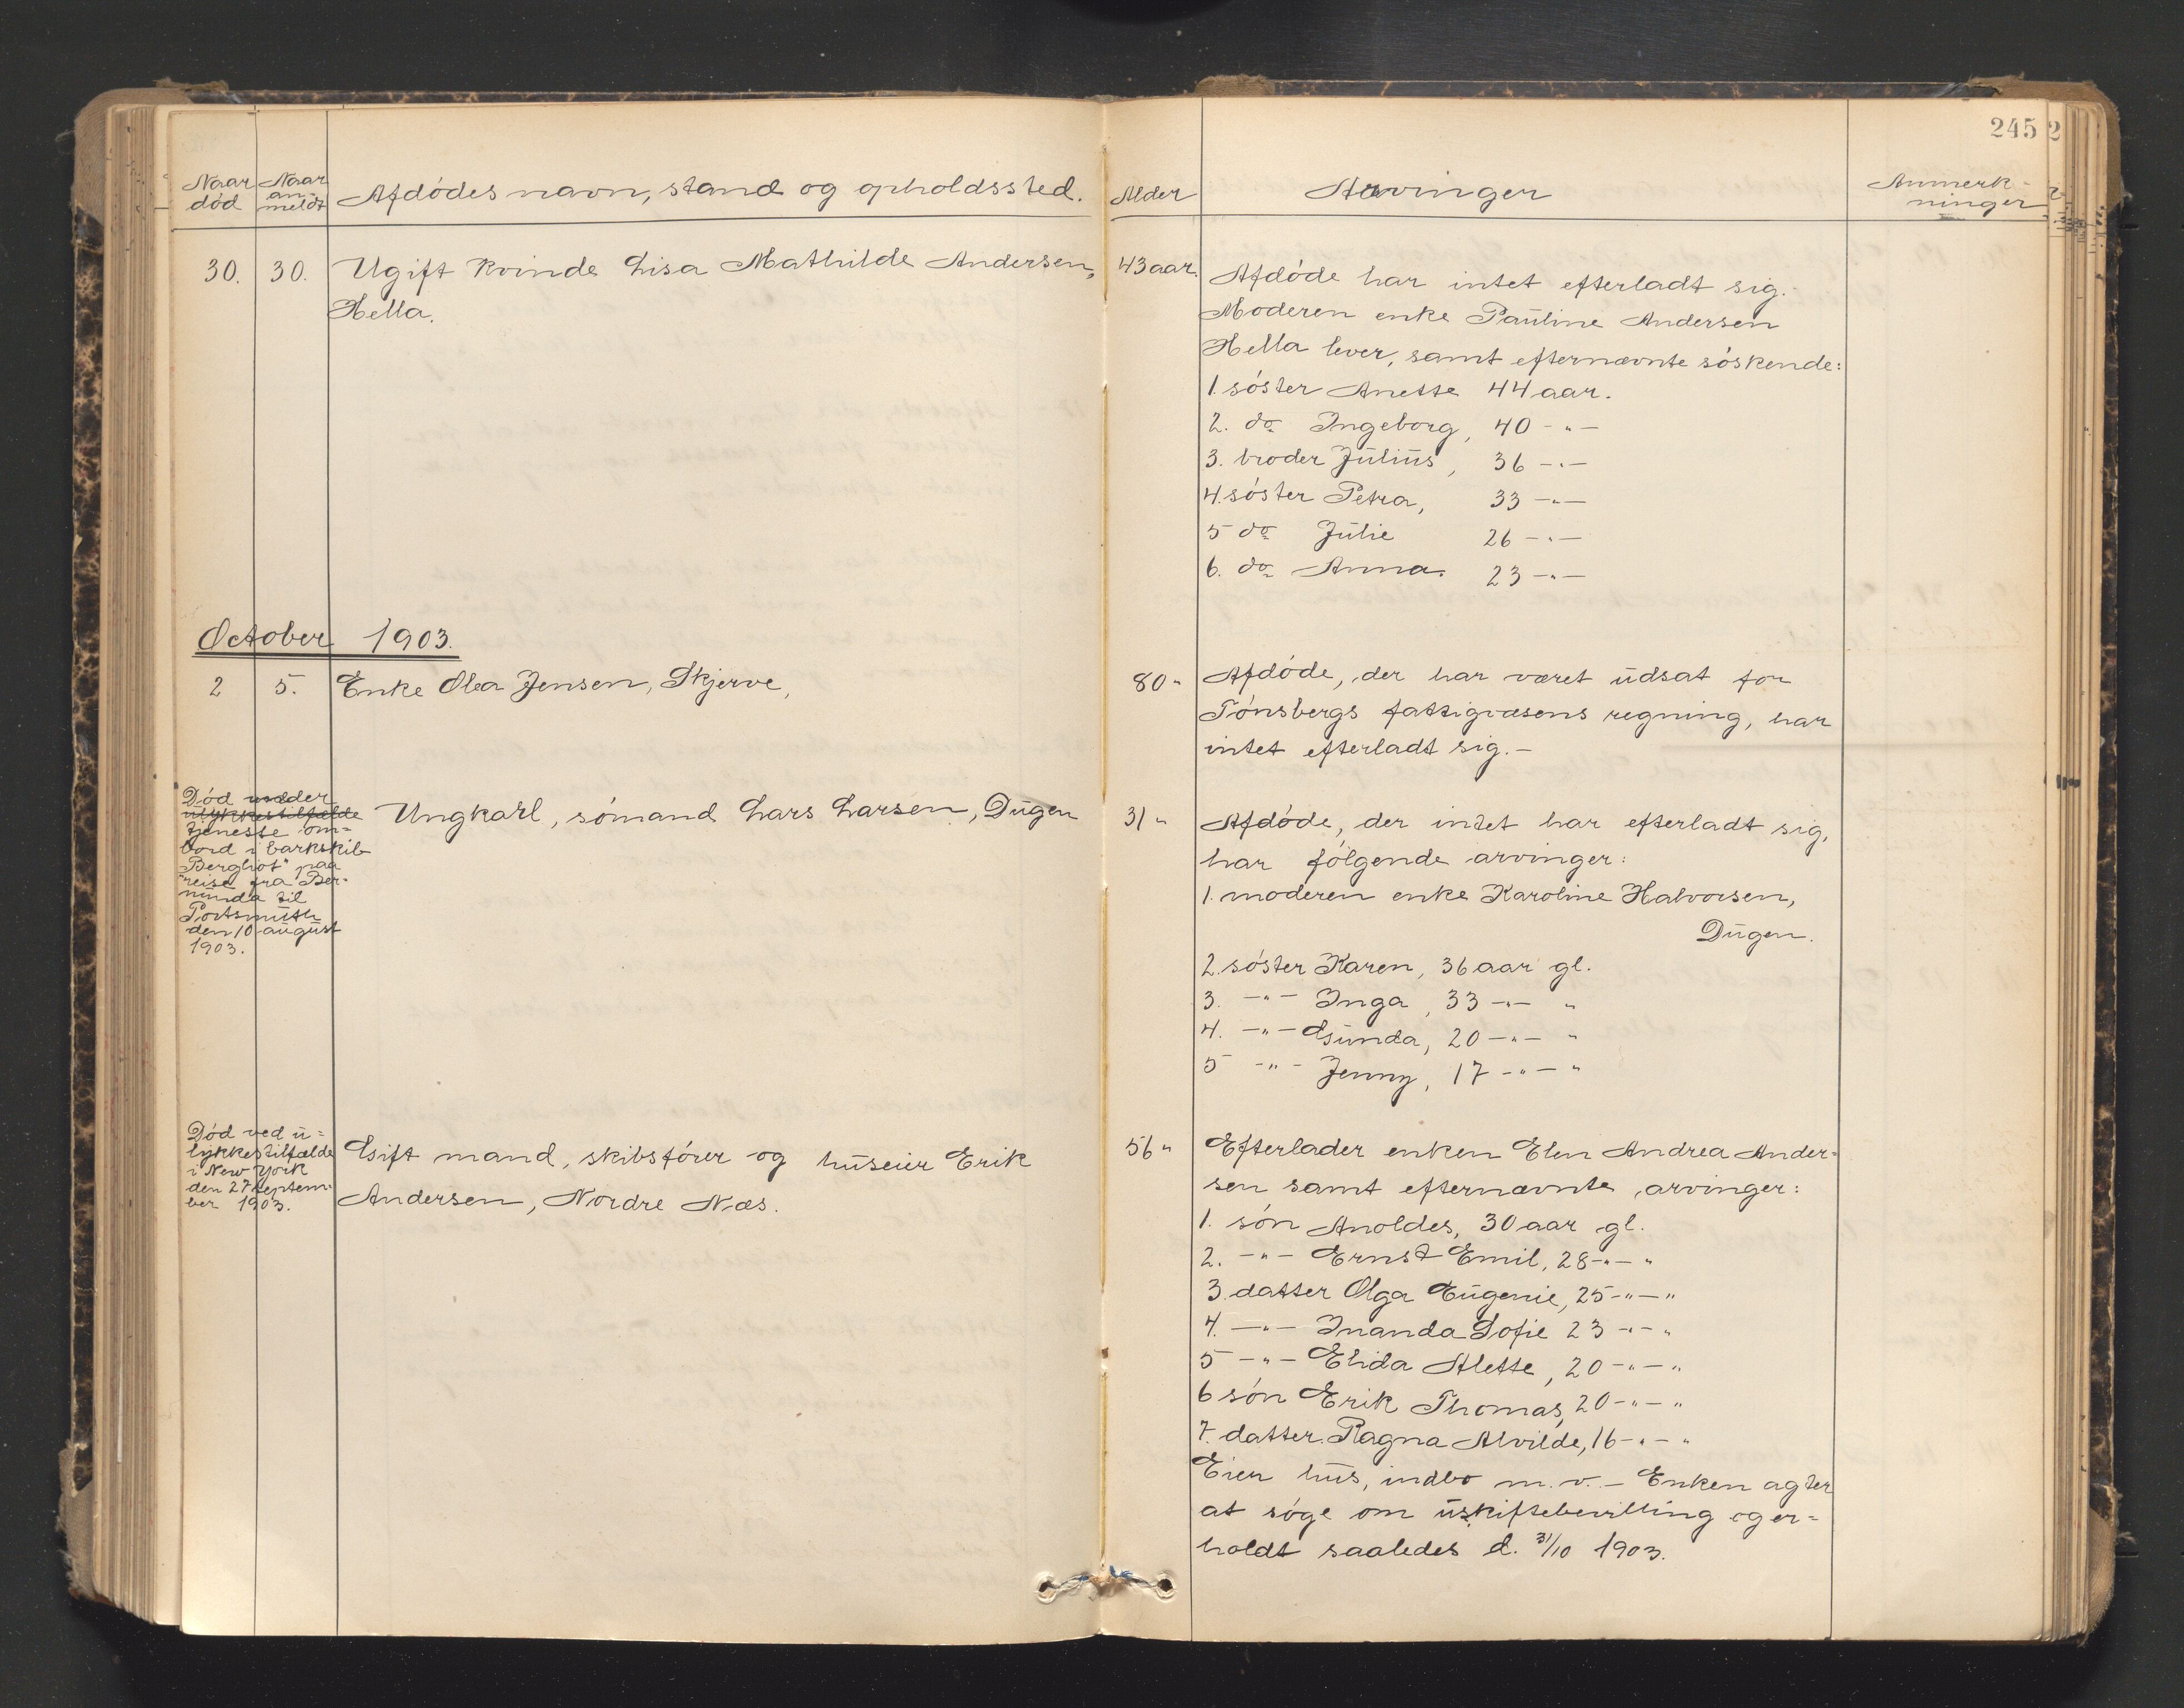 245 2
Naar død
Naar an-meldt
Afdødes navn, stand og opholdssted.
Alder
Arvinger
Anmerk-
ninger
30. 30. Ugift kvinde Lisa Mathilde Andersen,
Hella.
43 aar.
Afdøde har intet efterladt sig.
Moderen enke Pauline Andersen
Hella lever, samt efternævnte søskende:
1. søster Anette 44 aar.
2. do Ingeborg, 40 -"-
3. broder Julius, 36 -"-
4. søster Petra, 33 -"-
5 do Julie 26 -"-
6. do Anna. 23 -"-
October 1903.
2 5. Enke Olea Jensen, Skjerve,
80 "
Afdøde, der har været udsat for
Tønsbergs fattigvæsens regning, har
intet efterladt sig. -
Død under
ulykkestilfælde
tjeneste om=
bord i barkskib
"Bergliot" paa
reise fra Ber-
muda til
Portsmuth
den 10 august
1903.
Ungkarl, sømand Lars Larsen, Dugen
31 "
Afdøde, der intet har efterladt sig,
har følgende arvinger:
1. moderen enke Karoline Halvorsen,
Dugen.
2. søster Karen, 36 aar gl.
3. -"- Inga, 33 -"- "
4. -"- Gunda, 20 -"- "
5 -"- Jenny, 17 -"- "
Død ved u=
lykkestilfælde
i New York
den 27 septem-
ber 1903.
Gift mand, skibsfører og huseier Erik
Andersen, Nordre Næs.
56 "
Efterlader enken Elen Andrea Ander=
sen samt efternævnte arvinger:
1. søn Anoldes, 30 aar gl.
2. -"- Ernst Emil, 28 -"- "
3. datter Olga Eugenie, 25 -"- "
4. -"- Inanda Sofie 23 -"- "
5 -"- Elida Alette, 20 -"- "
6 søn Erik Thomas, 20 -"- "
7. datter Ragna Alvilde, 16 -"- "
Eier hus, indbo m. v. - Enken agter
at søge om uskiftebevilling og er=
holdt saaledes d. 31/10 1903.